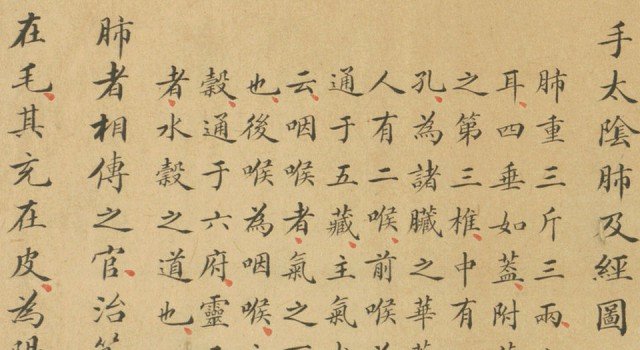 手太陰肺及經圖
肺重三斤三兩
耳四垂如蓋附
之第三椎中有
孔為諸臟之華
人有二喉前喉
通于五藏主氣
云咽喉者氣之
也後喉為咽喉
穀通于六府靈
者水穀之道也
肺者相傅之官治
在毛其充在皮為